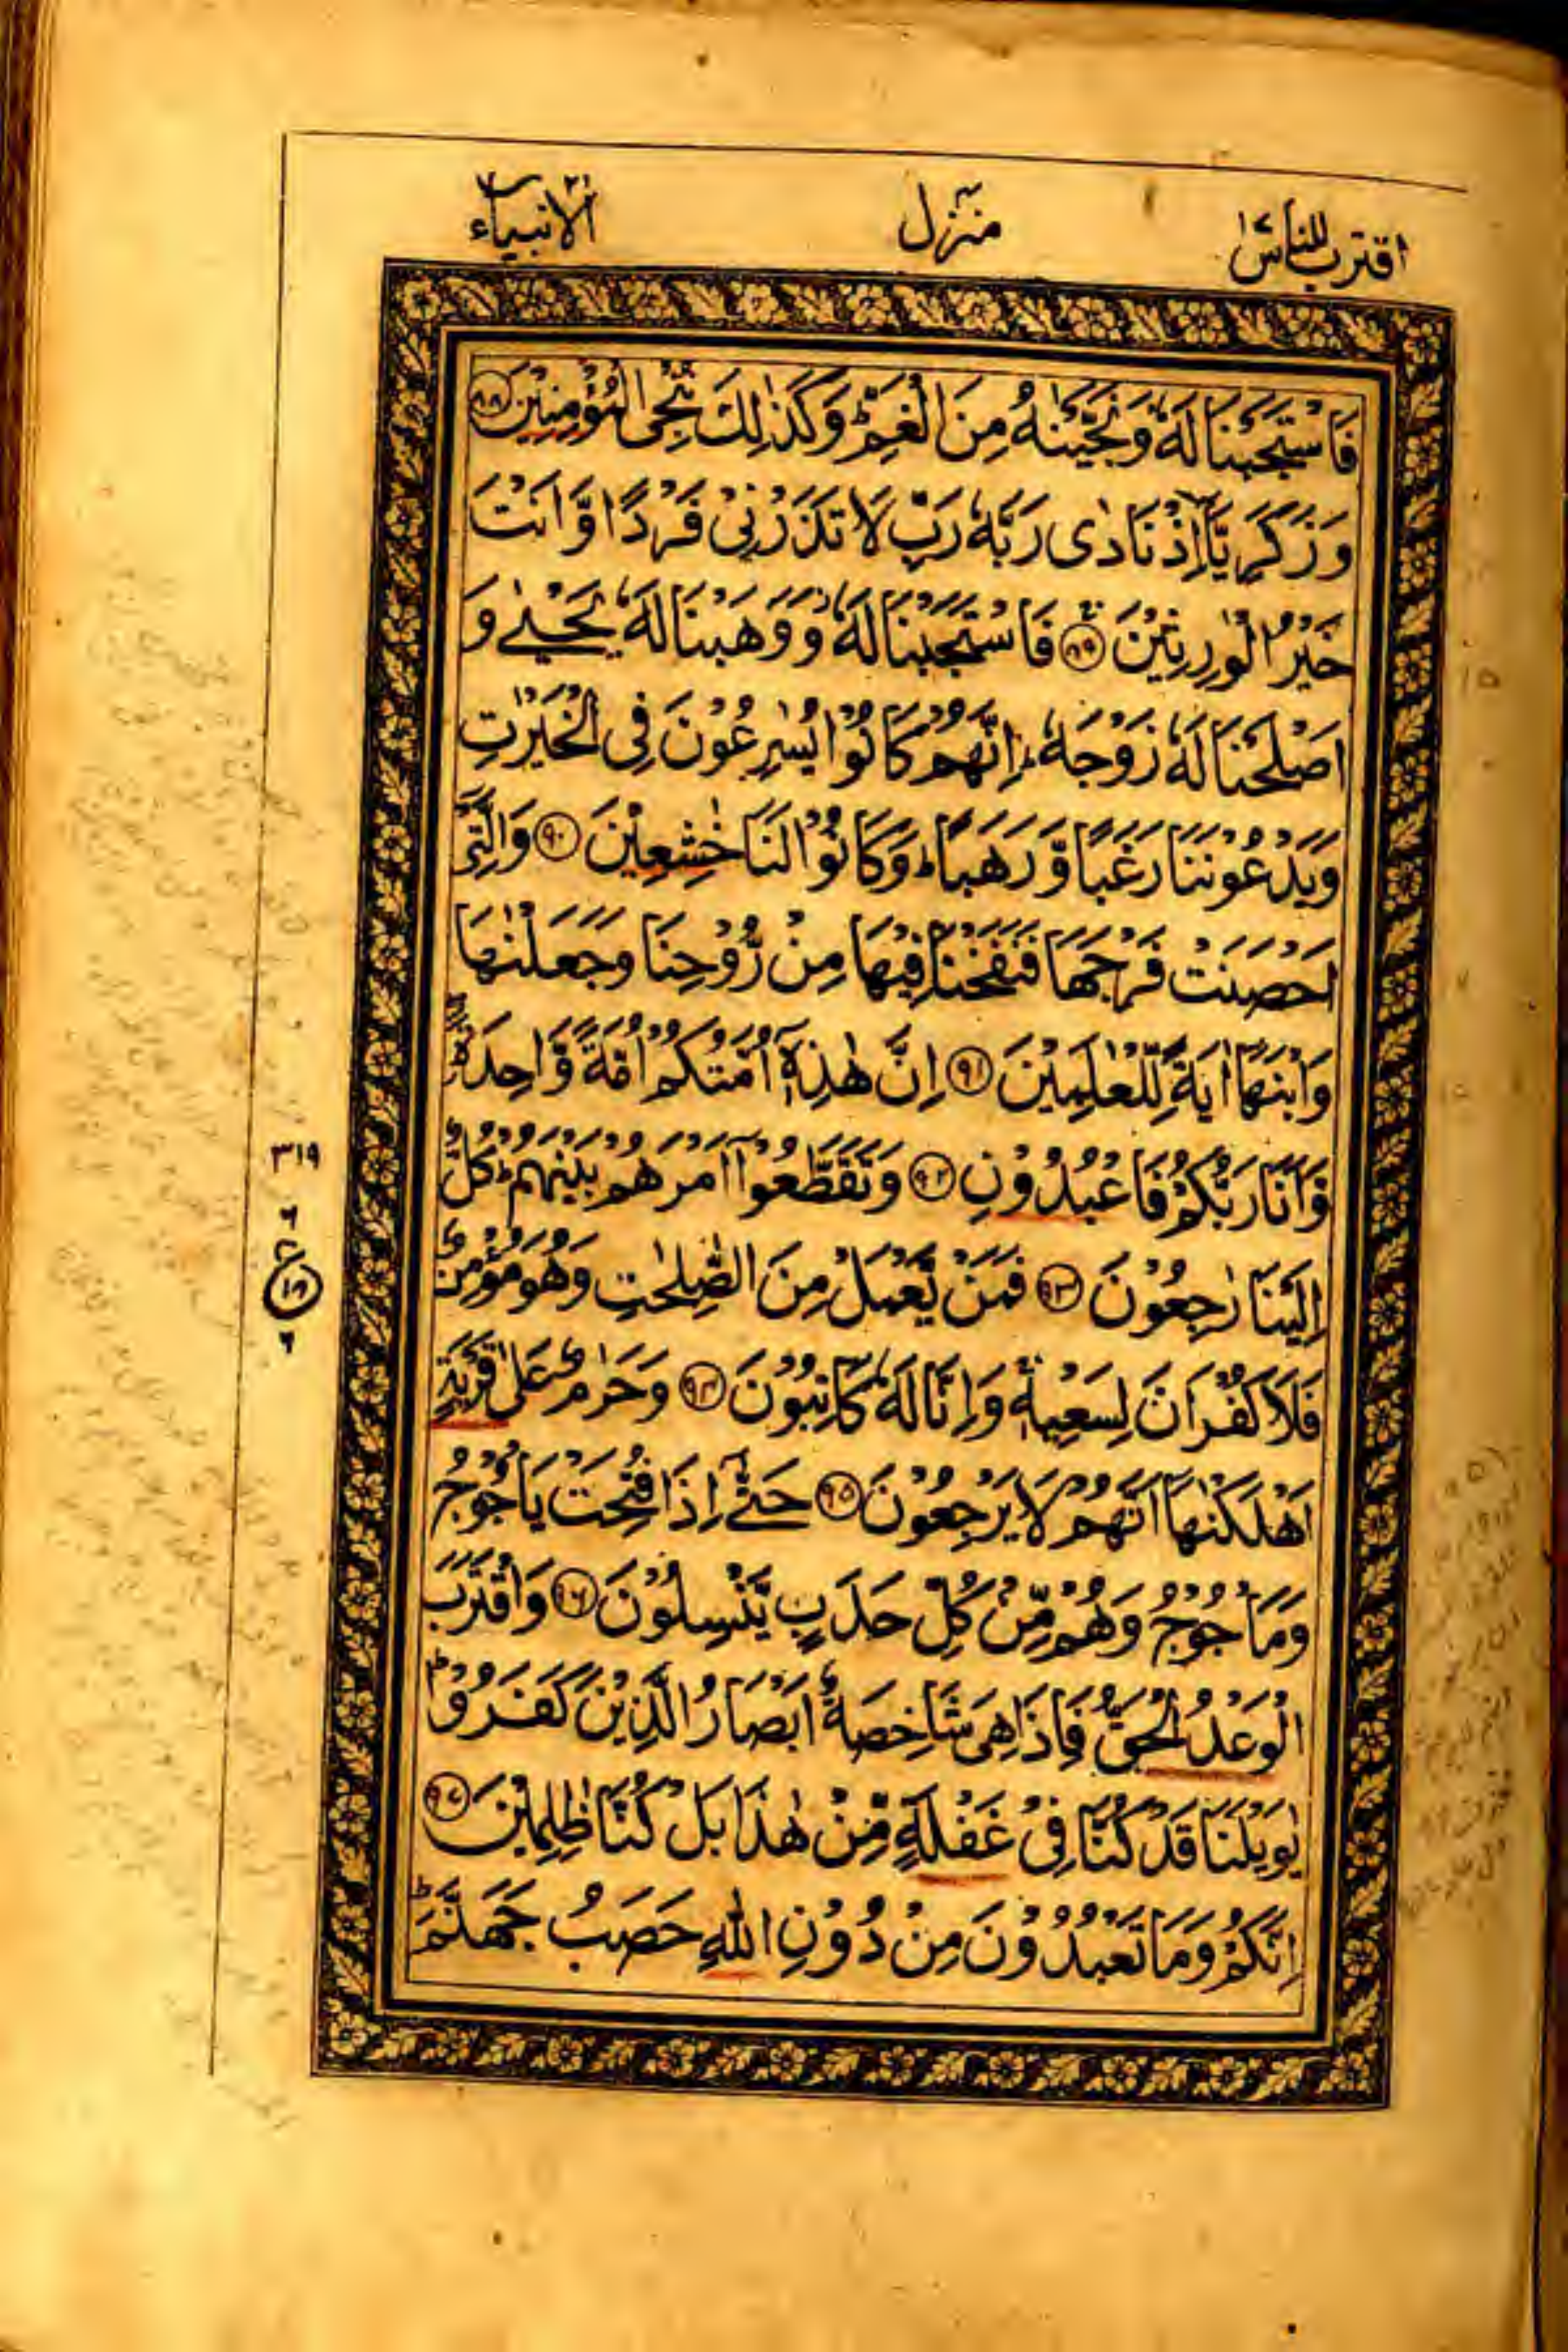 اقترب للناس ١٧
منزل ٤
الانبياء ٢١
فَاسْتَجَبْنَا لَهٗ وَنَجَّيْنٰهُ مِنَ الْغَمِّ ؕ وَكَذٰلِكَ نُـْۨجِى الْمُؤْمِنِيْنَ ﴿۸۸﴾
وَزَكَرِيَّاۤ اِذْ نَادٰى رَبَّهٗ رَبِّ لَا تَذَرْنِىْ فَرْدًا وَّاَنْتَ
خَيْرُ الْوٰرِثِيْنَ ﴿۸۹﴾ فَاسْتَجَبْنَا لَهٗ وَوَهَبْنَا لَهٗ يَحْيٰى وَ
اَصْلَحْنَا لَهٗ زَوْجَهٗ ؕ اِنَّهُمْ كَانُوْا يُسٰرِعُوْنَ فِى الْخَيْرٰتِ
وَيَدْعُوْنَنَا رَغَبًا وَّرَهَبًا ؕ وَكَانُوْا لَنَا خٰشِعِيْنَ ﴿۹۰﴾ وَالَّتِىْۤ
اَحْصَنَتْ فَرْجَهَا فَنَفَخْنَا فِيْهَا مِنْ رُّوْحِنَا وَجَعَلْنٰهَا
وَابْنَهَاۤ اٰيَةً لِّلْعٰلَمِيْنَ ﴿۹۱﴾ اِنَّ هٰذِهٖۤ اُمَّتُكُمْ اُمَّةً وَّاحِدَةً ؗ
وَّاَنَا رَبُّكُمْ فَاعْبُدُوْنِ ﴿۹۲﴾ وَتَقَطَّعُوْۤا اَمْرَهُمْ بَيْنَهُمْ ؕ كُلٌّ
اِلَيْنَا رٰجِعُوْنَ ﴿۹۳﴾ فَمَنْ يَّعْمَلْ مِنَ الصّٰلِحٰتِ وَهُوَ مُؤْمِنٌ
فَلَا كُفْرَانَ لِسَعْيِهٖ ۚ وَاِنَّا لَهٗ كٰتِبُوْنَ ﴿۹۴﴾ وَحَرٰمٌ عَلٰى قَرْيَةٍ
اَهْلَكْنٰهَاۤ اَنَّهُمْ لَا يَرْجِعُوْنَ ﴿۹۵﴾ حَتّٰۤى اِذَا فُتِحَتْ يَاْجُوْجُ
وَمَاْجُوْجُ وَهُمْ مِّنْ كُلِّ حَدَبٍ يَّنْسِلُوْنَ ﴿۹۶﴾ وَاقْتَرَبَ
الْوَعْدُ الْحَقُّ فَاِذَا هِىَ شَاخِصَةٌ اَبْصَارُ الَّذِيْنَ كَفَرُوْا ؕ
يٰوَيْلَنَا قَدْ كُنَّا فِىْ غَفْلَةٍ مِّنْ هٰذَا بَلْ كُنَّا ظٰلِمِيْنَ ﴿۹۷﴾
اِنَّكُمْ وَمَا تَعْبُدُوْنَ مِنْ دُوْنِ اللّٰهِ حَصَبُ جَهَنَّمَ ؕ
٣١٩
٦
ع
٦